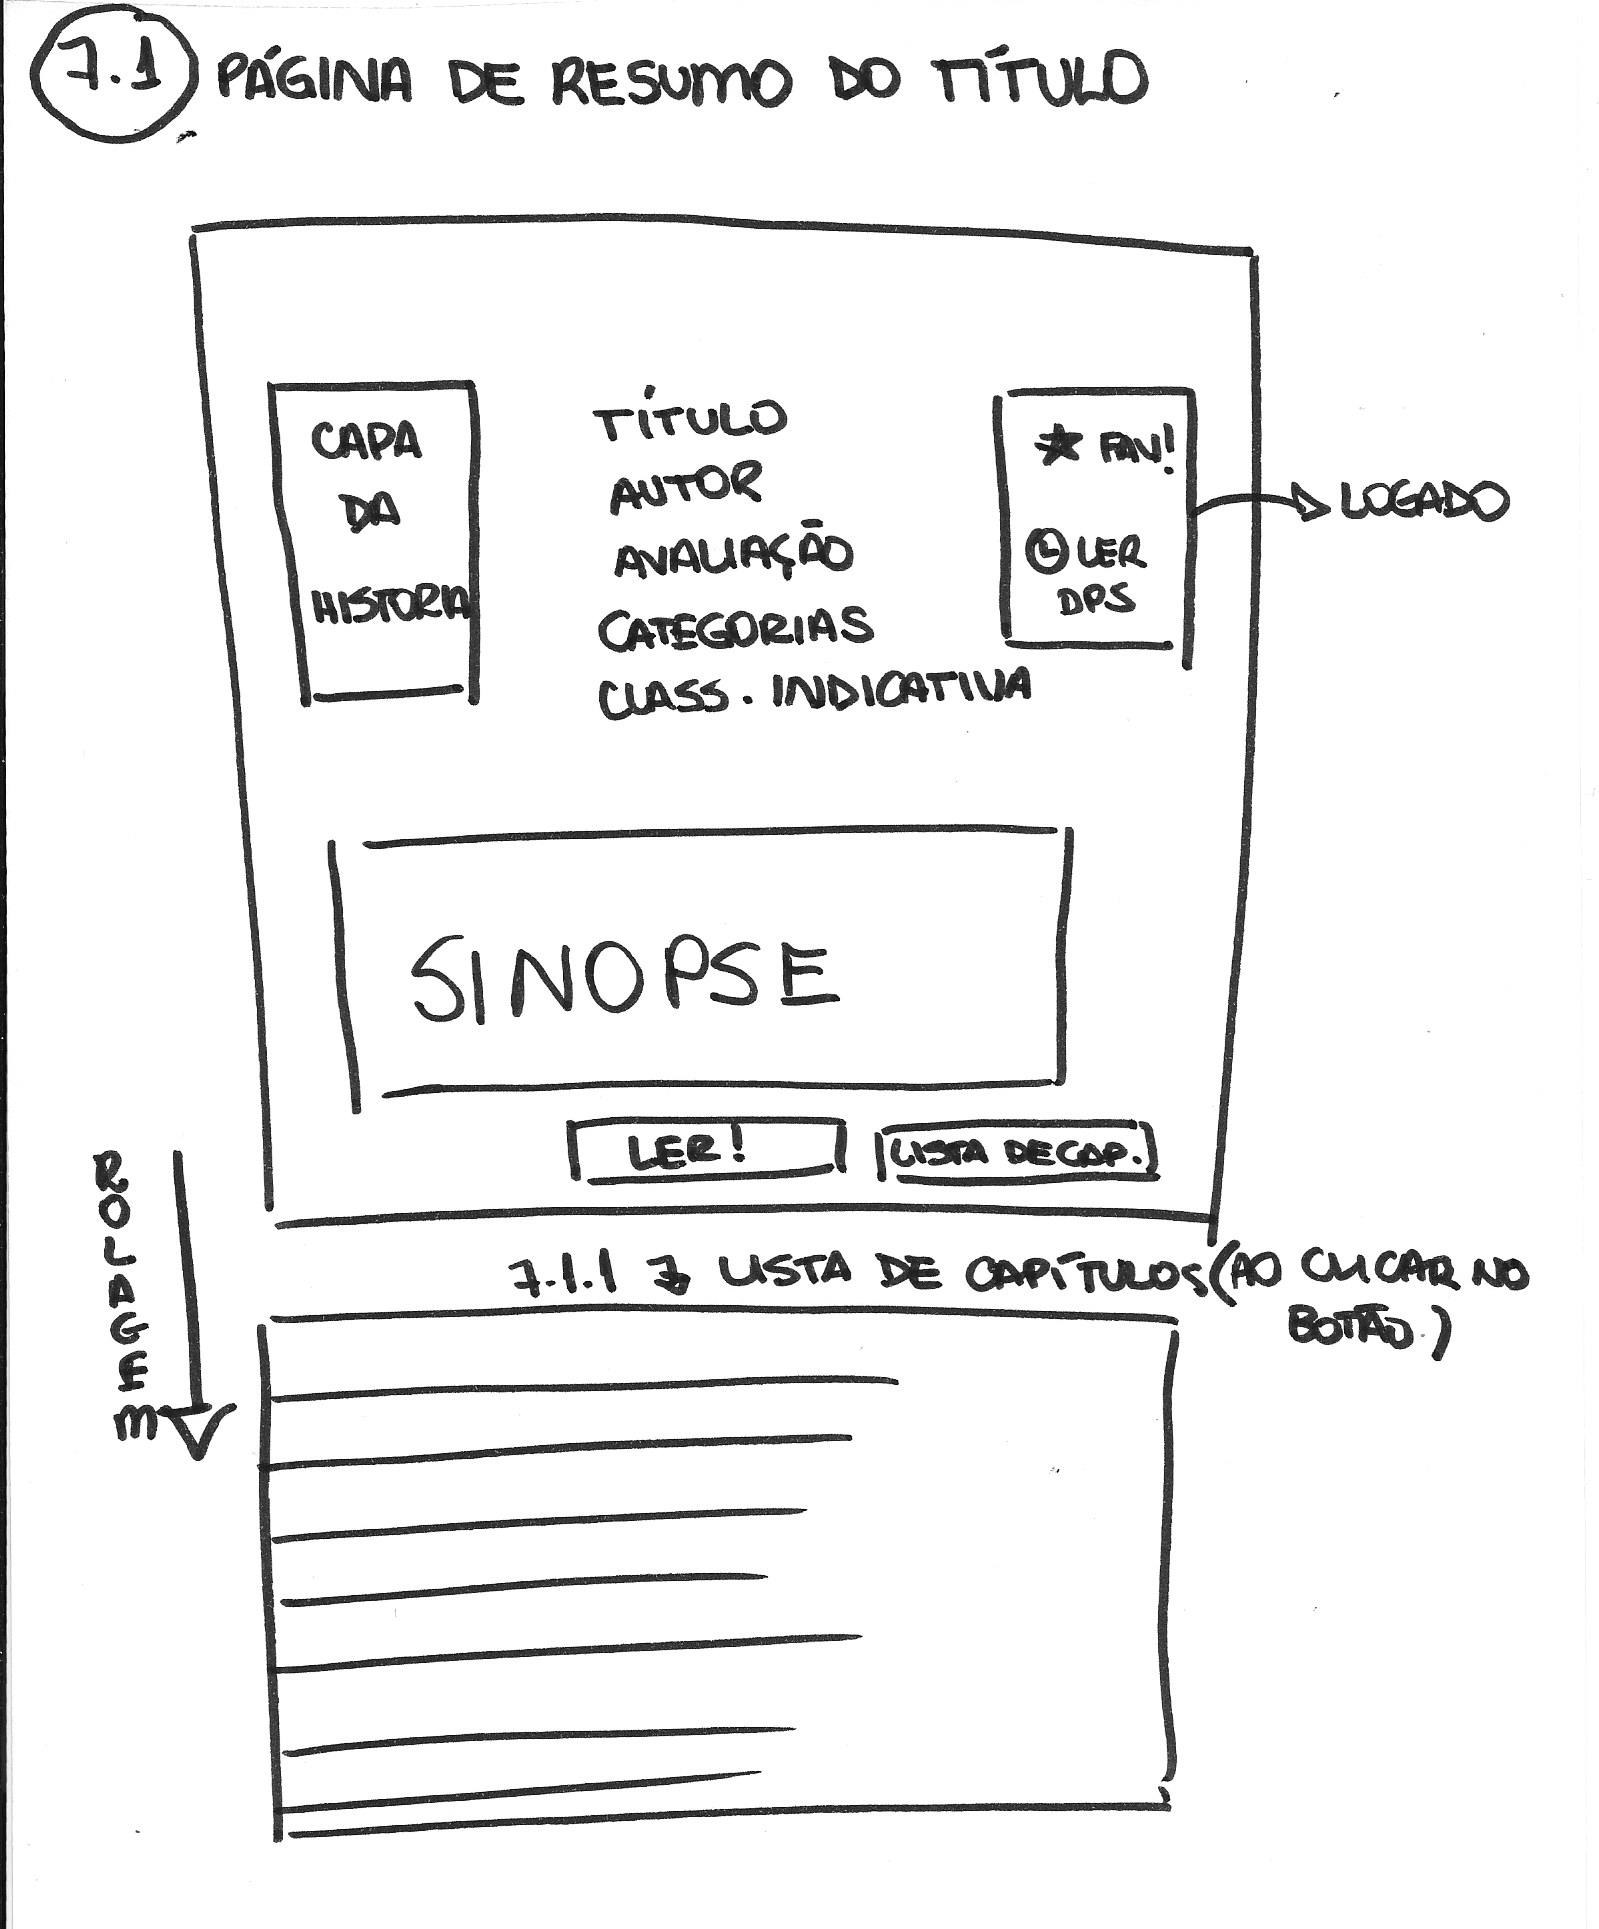 7.1 PÁGINA DE RESUMO DO TÍTULO
CAPA
DA
HISTORIA
TÍTULO
AUTOR
AVALIAÇÃO
CATEGORIAS
CLASS. INDICATIVA
★ FAV!
LER
DPS
LOGADO
SINOPSE
LER!
LISTA DE CAP.
ROLAGEM
7.1.1 → LISTA DE CAPÍTULOS (AO CLICAR NO
BOTÃO.)